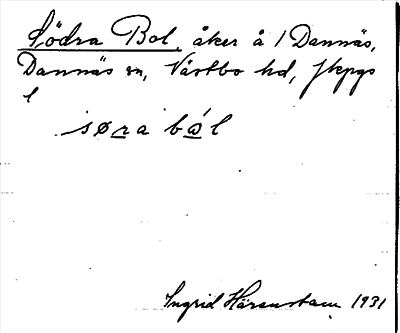 Södra Bol, åker å 1 Dannäs,
Dannäs sn, Västbo hd, Jkpgs
l
søra bål
Ingrid Härenstam 1931